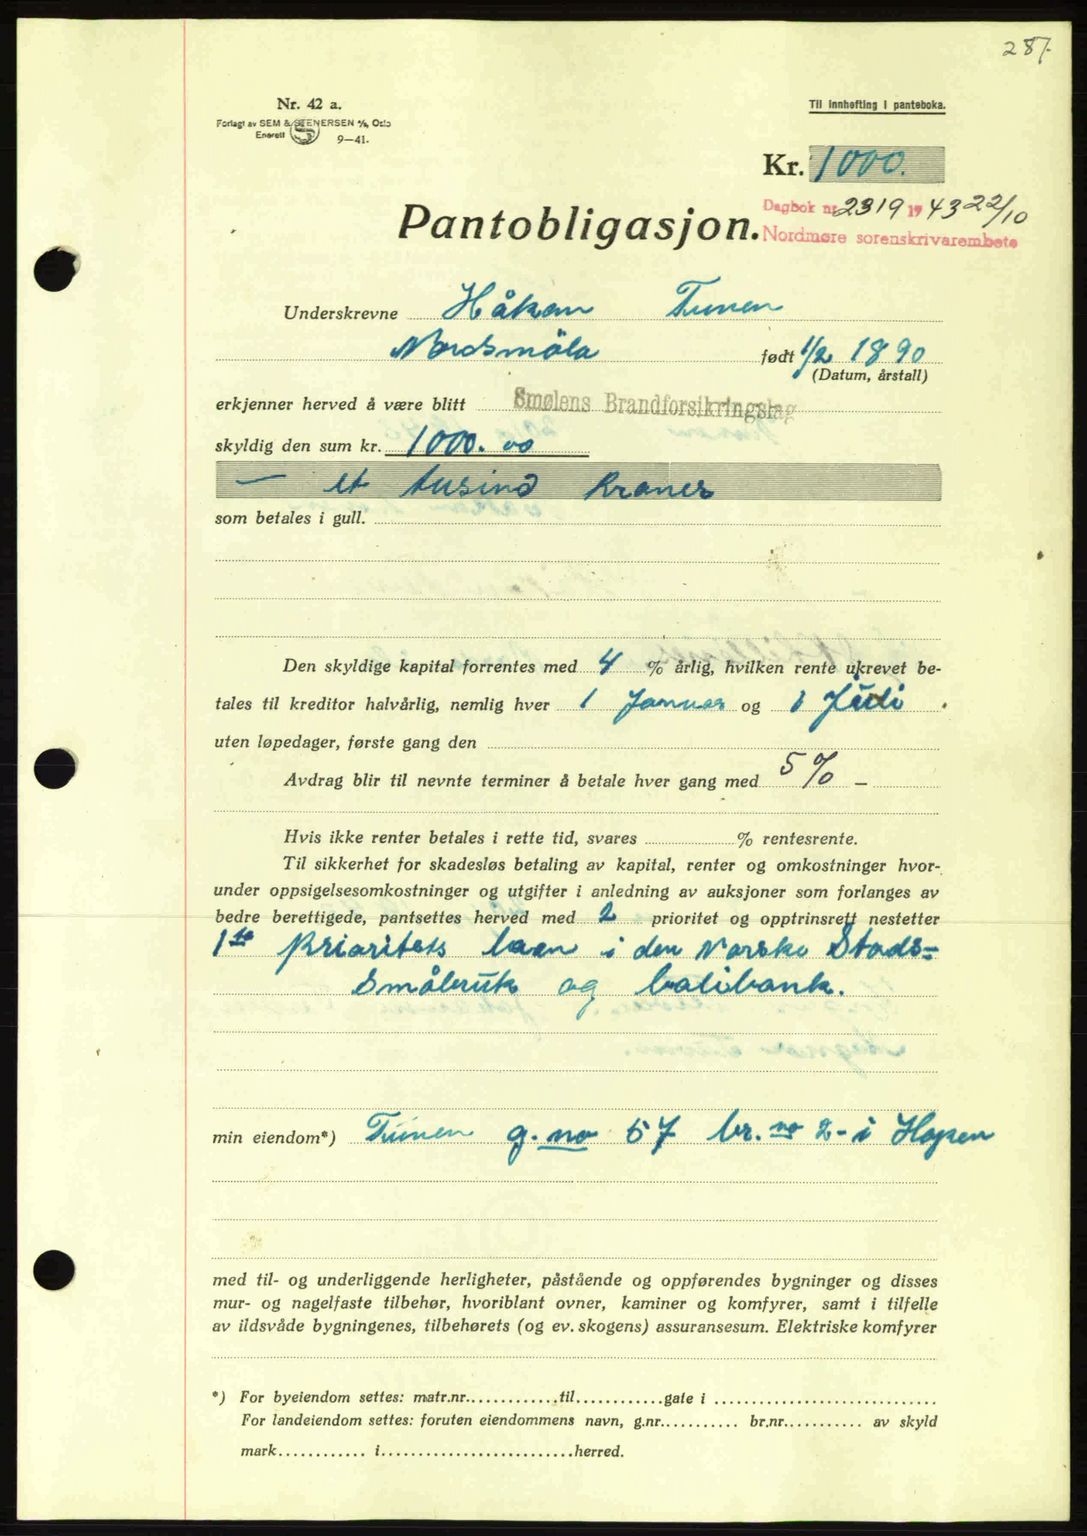 287.
Nr. 42 a.
Forlagt av SEM & STENERSEN A/S, Oslo
Enerett 9—41.
Til innhefting i panteboka.
Kr. 1000.
Dagbok nr. 2319 1943 22/10
Nordmøre sorenskrivarembete
Pantobligasjon.
Underskrevne Håkon Tunen
Nordsmöla født 1/2 1890
(Datum, årstall)
erkjenner herved å være blitt Smølens Brandforsikringslag
skyldig den sum kr. 1000.00
— et tusind kroner
som betales i gull.
Den skyldige kapital forrentes med 4 % årlig, hvilken rente ukrevet be-
tales til kreditor halvårlig, nemlig hver 1 Januar og 1 Juli
uten løpedager, første gang den
Avdrag blir til nevnte terminer å betale hver gang med 5 % —
Hvis ikke renter betales i rette tid, svares % rentesrente.
Til sikkerhet for skadesløs betaling av kapital, renter og omkostninger hvor-
under oppsigelsesomkostninger og utgifter i anledning av auksjoner som forlanges av
bedre berettigede, pantsettes herved med 2 prioritet og opptrinsrett nestetter
1ste Prioritets laan i den Norske Stads=
Småbruk og bolibank.
min eiendom*) Tunen g. no 57 br. no 2 - i Hopen
med til- og underliggende herligheter, påstående og oppførendes bygninger og disses
mur- og nagelfaste tilbehør, hvoriblant ovner, kaminer og komfyrer, samt i tilfelle
av ildsvåde bygningenes, tilbehørets (og ev. skogens) assuransesum. Elektriske komfyrer
*) For byeiendom settes: matr.nr.............til............gate i .............................
For landeiendom settes: foruten eiendommens navn, g.nr........... br.nr........... av skyld
mark............ i.............................herred.